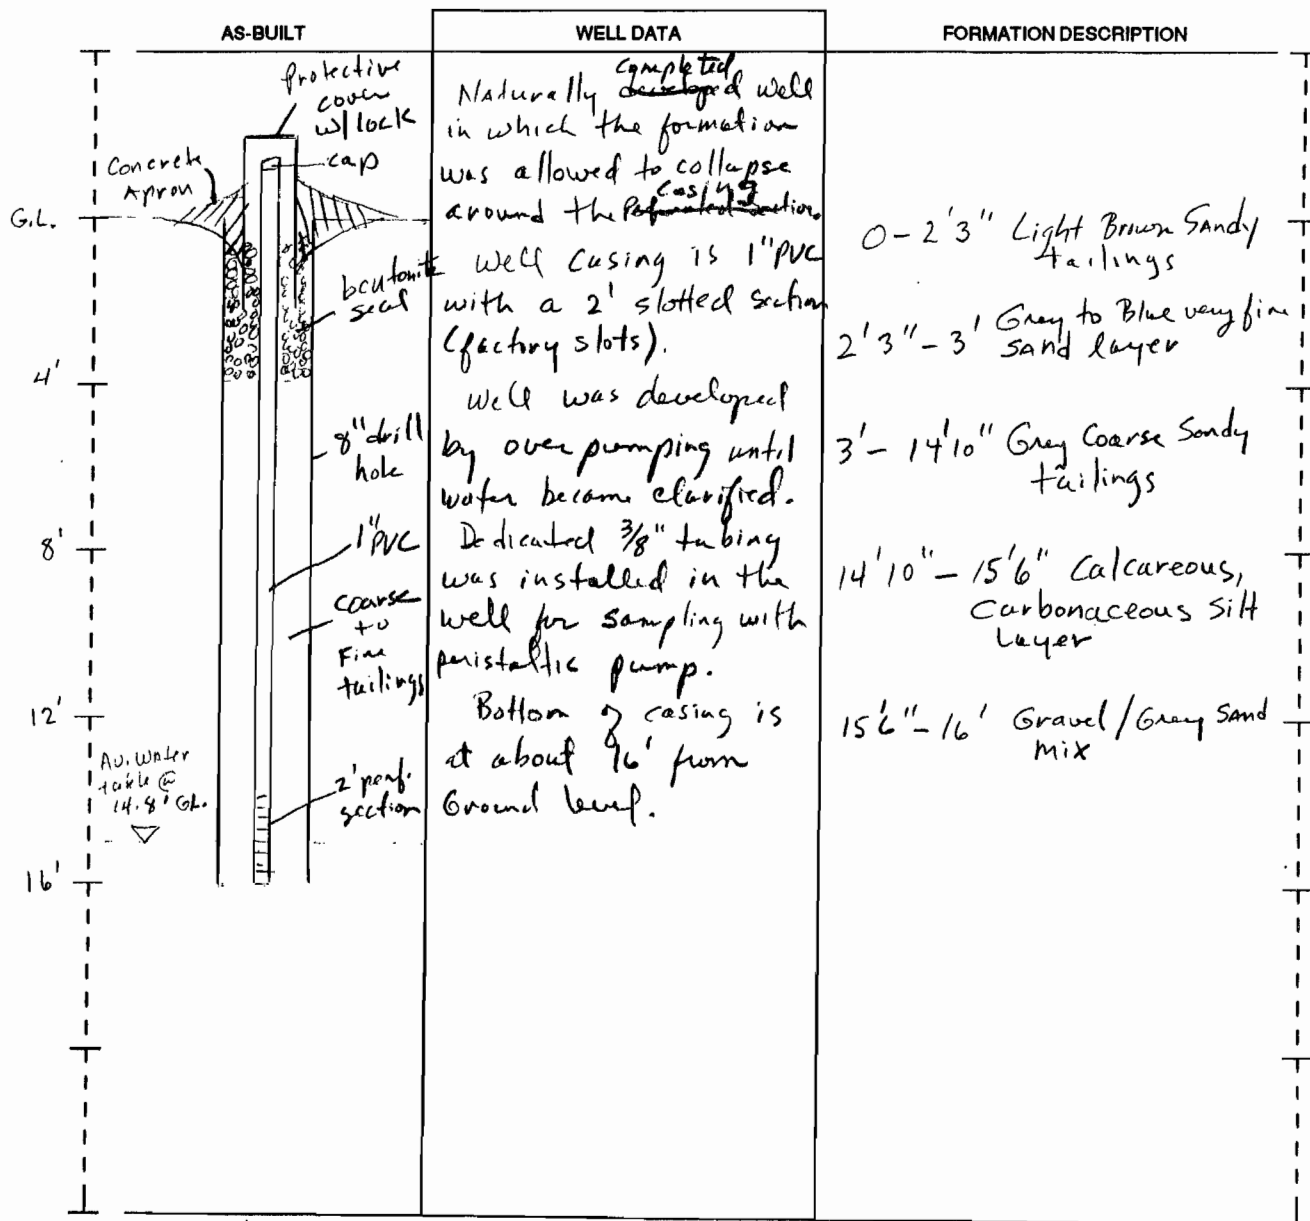 AS-BUILT
WELL DATA
FORMATION DESCRIPTION
Protective
cover
w/ lock
cap
Concrete
Apron
G.L.
bentonite
seal
4'
8" drill
hole
8'
1" PVC
coarse
to
Fine
tailings
12'
Av. Water
table @
14.8' GL.
2' perf.
section
16'
completed
Naturally developed well
in which the formation
was allowed to collapse
casing
around the Perforated section.
Well Casing is 1" PVC
with a 2' slotted section
(factory slots).
Well was developed
by over pumping until
water became clarified.
Dedicated 3/8" tubing
was installed in the
well for sampling with
peristaltic pump.
Bottom of casing is
at about 16' from
Ground level.
0-2'3" Light Brown Sandy
tailings
2'3"-3' Grey to Blue very fine
sand layer
3'-14'10" Grey Coarse Sandy
tailings
14'10"-15'6" Calcareous,
Carbonaceous Silt
Layer
15'6"-16' Gravel/Grey Sand
mix